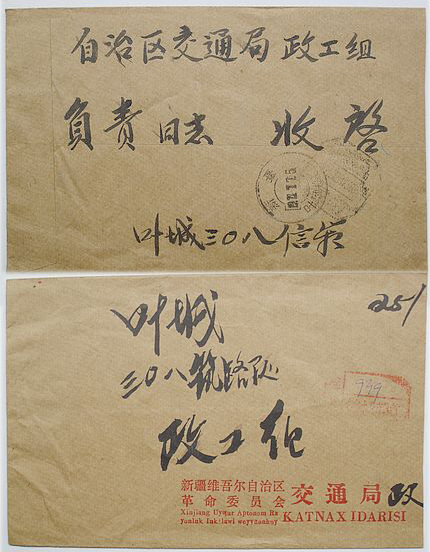 自治区交通局政工组
负责同志 收启
叶城三〇八信箱
251
叶城
三〇八筑路处
政工组
939
新疆维吾尔自治区
革命委员会 交通局 政
Xinjiang Uyƣur Aptonom Ra
yonluk Inkilawi weyyuanhuy KATNAX IDARISI